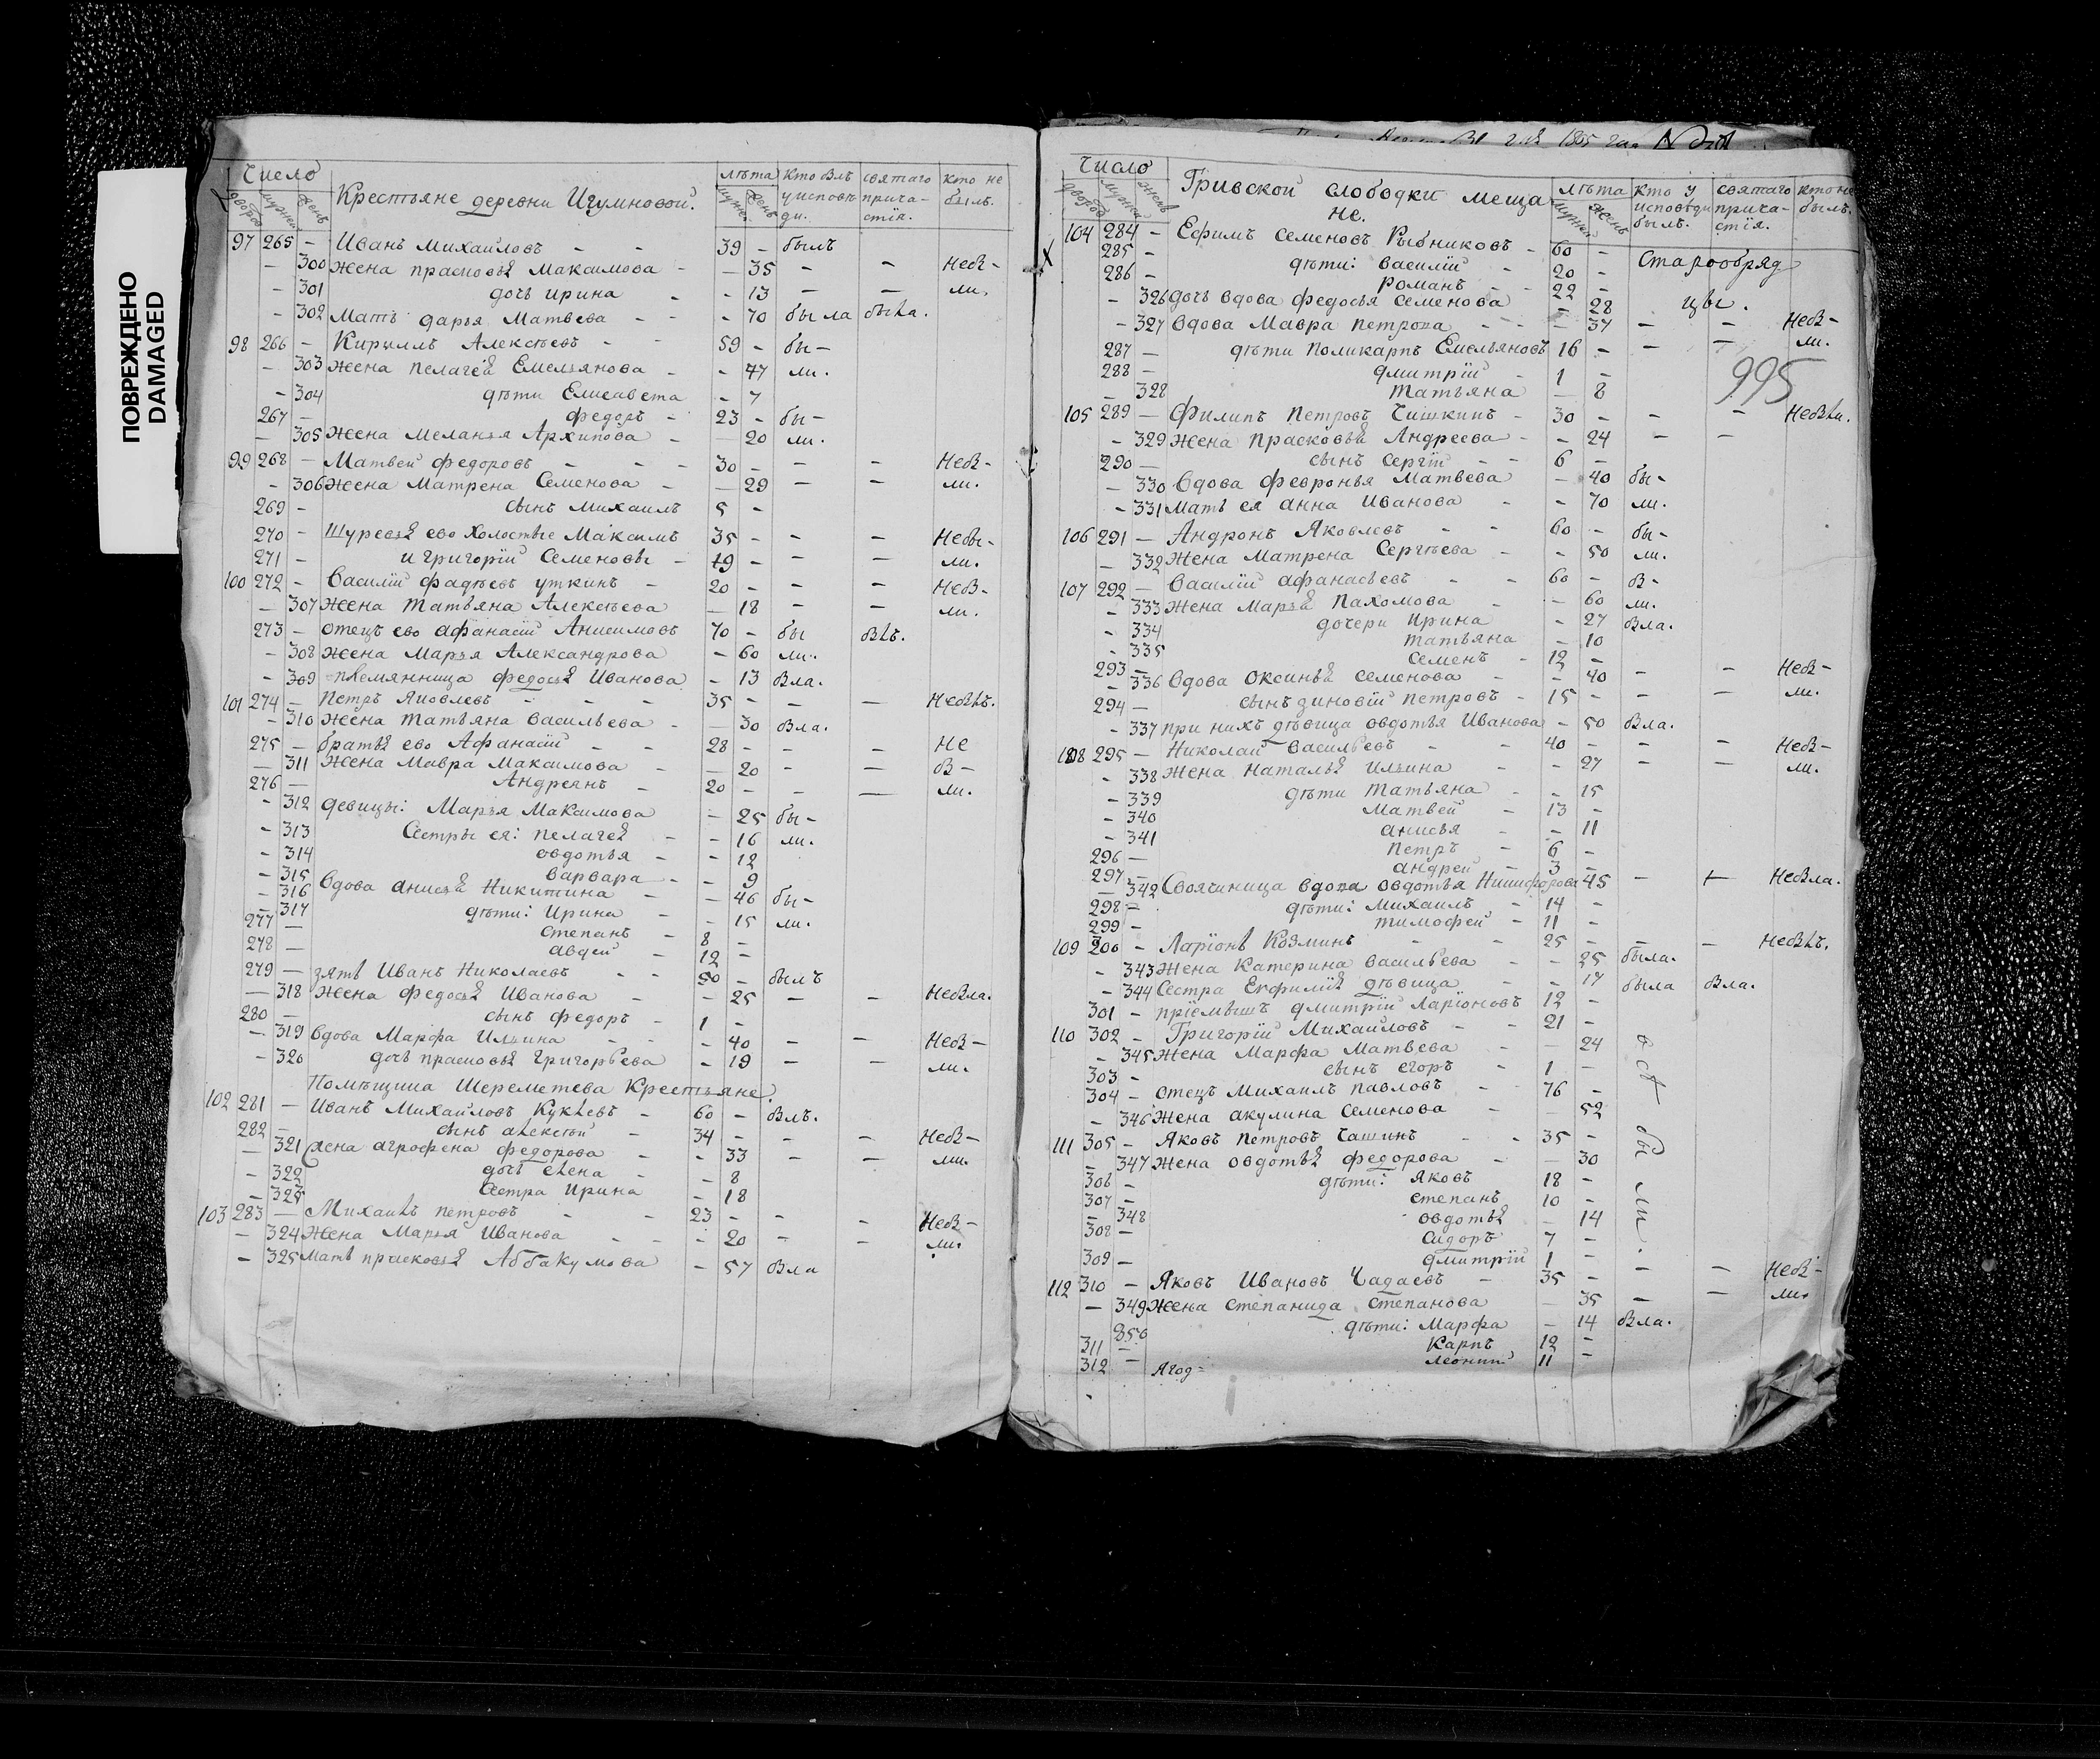 ПОВРЕЖДЕНО
DAMAGED
Число Крестьяне деревни Игумновой. лѣта кто былъ у исповѣди. святаго причастія. кто не былъ.
дворов мужеск женск муже. женс
97 265 – Иванъ Михаиловъ – – 39 – былъ
– 300 Жена прасковья Максимова – – 35 – – Небы-
– 301 дочь ирина – – 13 – – ли.
– 302 Мать дарья Матвеева – – 70 была была.
98 266 – Кириллъ Алексѣевъ – – 59 – бы-
– 303 Жена пелагея Емельянова – – 47 ли.
– 304 дѣти Елисавета – 7
267 – федоръ – 23 – бы-
– 305 Жена Меланья Архипова – – 20 ли.
99 268 – Матвей федоровъ – – – 30 – – – Небы-
– 306 Жена Матрена Семенова – – 29 – – ли.
269 – сынъ Михаилъ 5 –
270 – Шурья ево холостые Максимъ 35 – – – Небы-
271 – и григорій Семеновы – 19 – – – ли.
100 272 – Василій фадѣевъ уткинъ – 20 – – – Небы-
– 307 Жена татьяна Алексѣева – 18 – – ли.
273 – отецъ ево афанасій Анисимовъ 70 – бы былъ.
– 308 Жена Марья Александрова – 60 ли.
– 309 племянница федосья Иванова – 13 была.
101 274 – Петръ Яковлевъ – – – 35 – – – Небылъ.
– 310 Жена татьяна васильева – – 30 была.
275 – братья ево Афанасій – – 28 – – – Не
– 311 Жена Мавра Максимова – – 20 – – бы-
276 – Андреянъ – 20 – – – ли.
– 312 девицы: Марья Максимова – 25 бы-
– 313 Сестры ея: пелагея – – 16 ли.
– 314 овдотья – – 12
– 315 варвара – – 9
– 316 вдова анисья Никитина – – 46 бы-
– 317 дѣти: Ирина – – 15 ли.
277 – степанъ – 8 –
278 – авдей – 12 –
279 – зять Иванъ Николаевъ – – 50 – былъ
– 318 Жена федосья Иванова – – 25 – – Небыла.
280 – сынъ федоръ – 1 –
– 319 вдова Марфа Ильина – – – 40 – – Небы-
– 320 дочь прасковья григорьева – 19 – – ли.
Помѣщика Шереметева Крестьяне.
102 281 – Иванъ Михаиловъ Куклевъ – 60 – былъ.
282 – сынъ алексѣй – 34 – – – Небы-
– 321 Жена агрофена федорова – – 33 – – ли.
– 322 дочь елена – – 8
– 323 Сестра Ирина – 18
103 283 – Михаилъ петровъ – – 23 – – – Небы-
– 324 Жена Марья Иванова – – – 20 – – ли.
– 325 Мать прасковья Аббакумова – 57 была
Число Гривской слободки мещане. лѣта кто у исповѣди былъ. святаго причастія. кто не былъ.
дворов мужеск женск мужеск женск
104 284 – Ефимъ семеновъ Рыбниковъ – 60 – старообряд
285 – дѣти: василій – 20 –
286 – романъ – – 22 – цы.
– 326 дочь вдова федосья семенова – 28
– 327 вдова Мавра петрова – – – 37 – – Небы-
287 – дѣти поликарпъ Емельяновъ 16 – – – ли.
288 – дмитрій – 1 –
– 328 татьяна – 8
995
105 289 – филипъ петровъ Чишкинъ – 30 – – – Небыли.
– 329 Жена прасковья Андреева – – 24 – –
290 – сынъ сергій – – 6 –
– 330 вдова февронья Матвеева – 40 бы-
– 331 мать ея анна Иванова – – 70 ли.
106 291 – Андронъ Яковлевъ – – 60 – бы-
– 332 Жена Матрена Сергѣева – – 50 ли.
107 292 – василій афанасьевъ – – 60 – бы-
– 333 Жена Марья Пахомова – – 60 ли.
– 334 дочери ирина – 27 была.
– 335 татьяна – 10
293 – семенъ – 12 –
– 336 вдова оксинья семенова – – 40 – – Небы-
294 – сынъ зиновій петровъ – 15 – – – ли.
– 337 при нихъ дѣвица овдотья Иванова – 50 была.
108 295 – Николай васильевъ – – 40 – – – Небы-
– 338 Жена наталья ильина – – 27 – – ли.
– 339 дѣти татьяна – – 15
– 340 матвей – 13 –
– 341 анисья – – 11
296 – петръ – 6 –
297 – андрей – 3 –
– 342 своячиница вдова овдотья Никифорова 45 – – Небыла.
298 – дѣти: михаилъ – 14 –
299 – тимофей – 11 –
109 300 – Ларіонъ Козминъ – – 25 – – – Небылъ.
– 343 Жена Катерина васильева – – 25 была.
– 344 Сестра Евфимія дѣвица – – 17 была была.
301 – пріемышъ дмитрій ларіоновъ 12 –
110 302 – Григорій Михаиловъ – – 21 –
– 345 Жена Марфа Матвеева – – 24
303 – сынъ егоръ – 1 –
304 – отецъ Михаилъ павловъ – 76 –
– 346 Жена акулина семенова – – 52
111 305 – Яковъ петровъ Чашинъ – – 35 –
– 347 Жена овдотья федорова – – 30
306 – дѣти: яковъ 18 –
307 – степанъ 10 –
– 348 овдотья – 14
308 – сидоръ 7 –
309 – дмитрій 1 –
всѣ были.
112 310 – Яковъ Ивановъ Чадаевъ – 35 – – – Небы-
– 349 Жена степанида степанова – 35 – – ли.
350 дѣти: Марфа – 14 была.
311 – карпъ 12 –
312 – леонтій 11 –